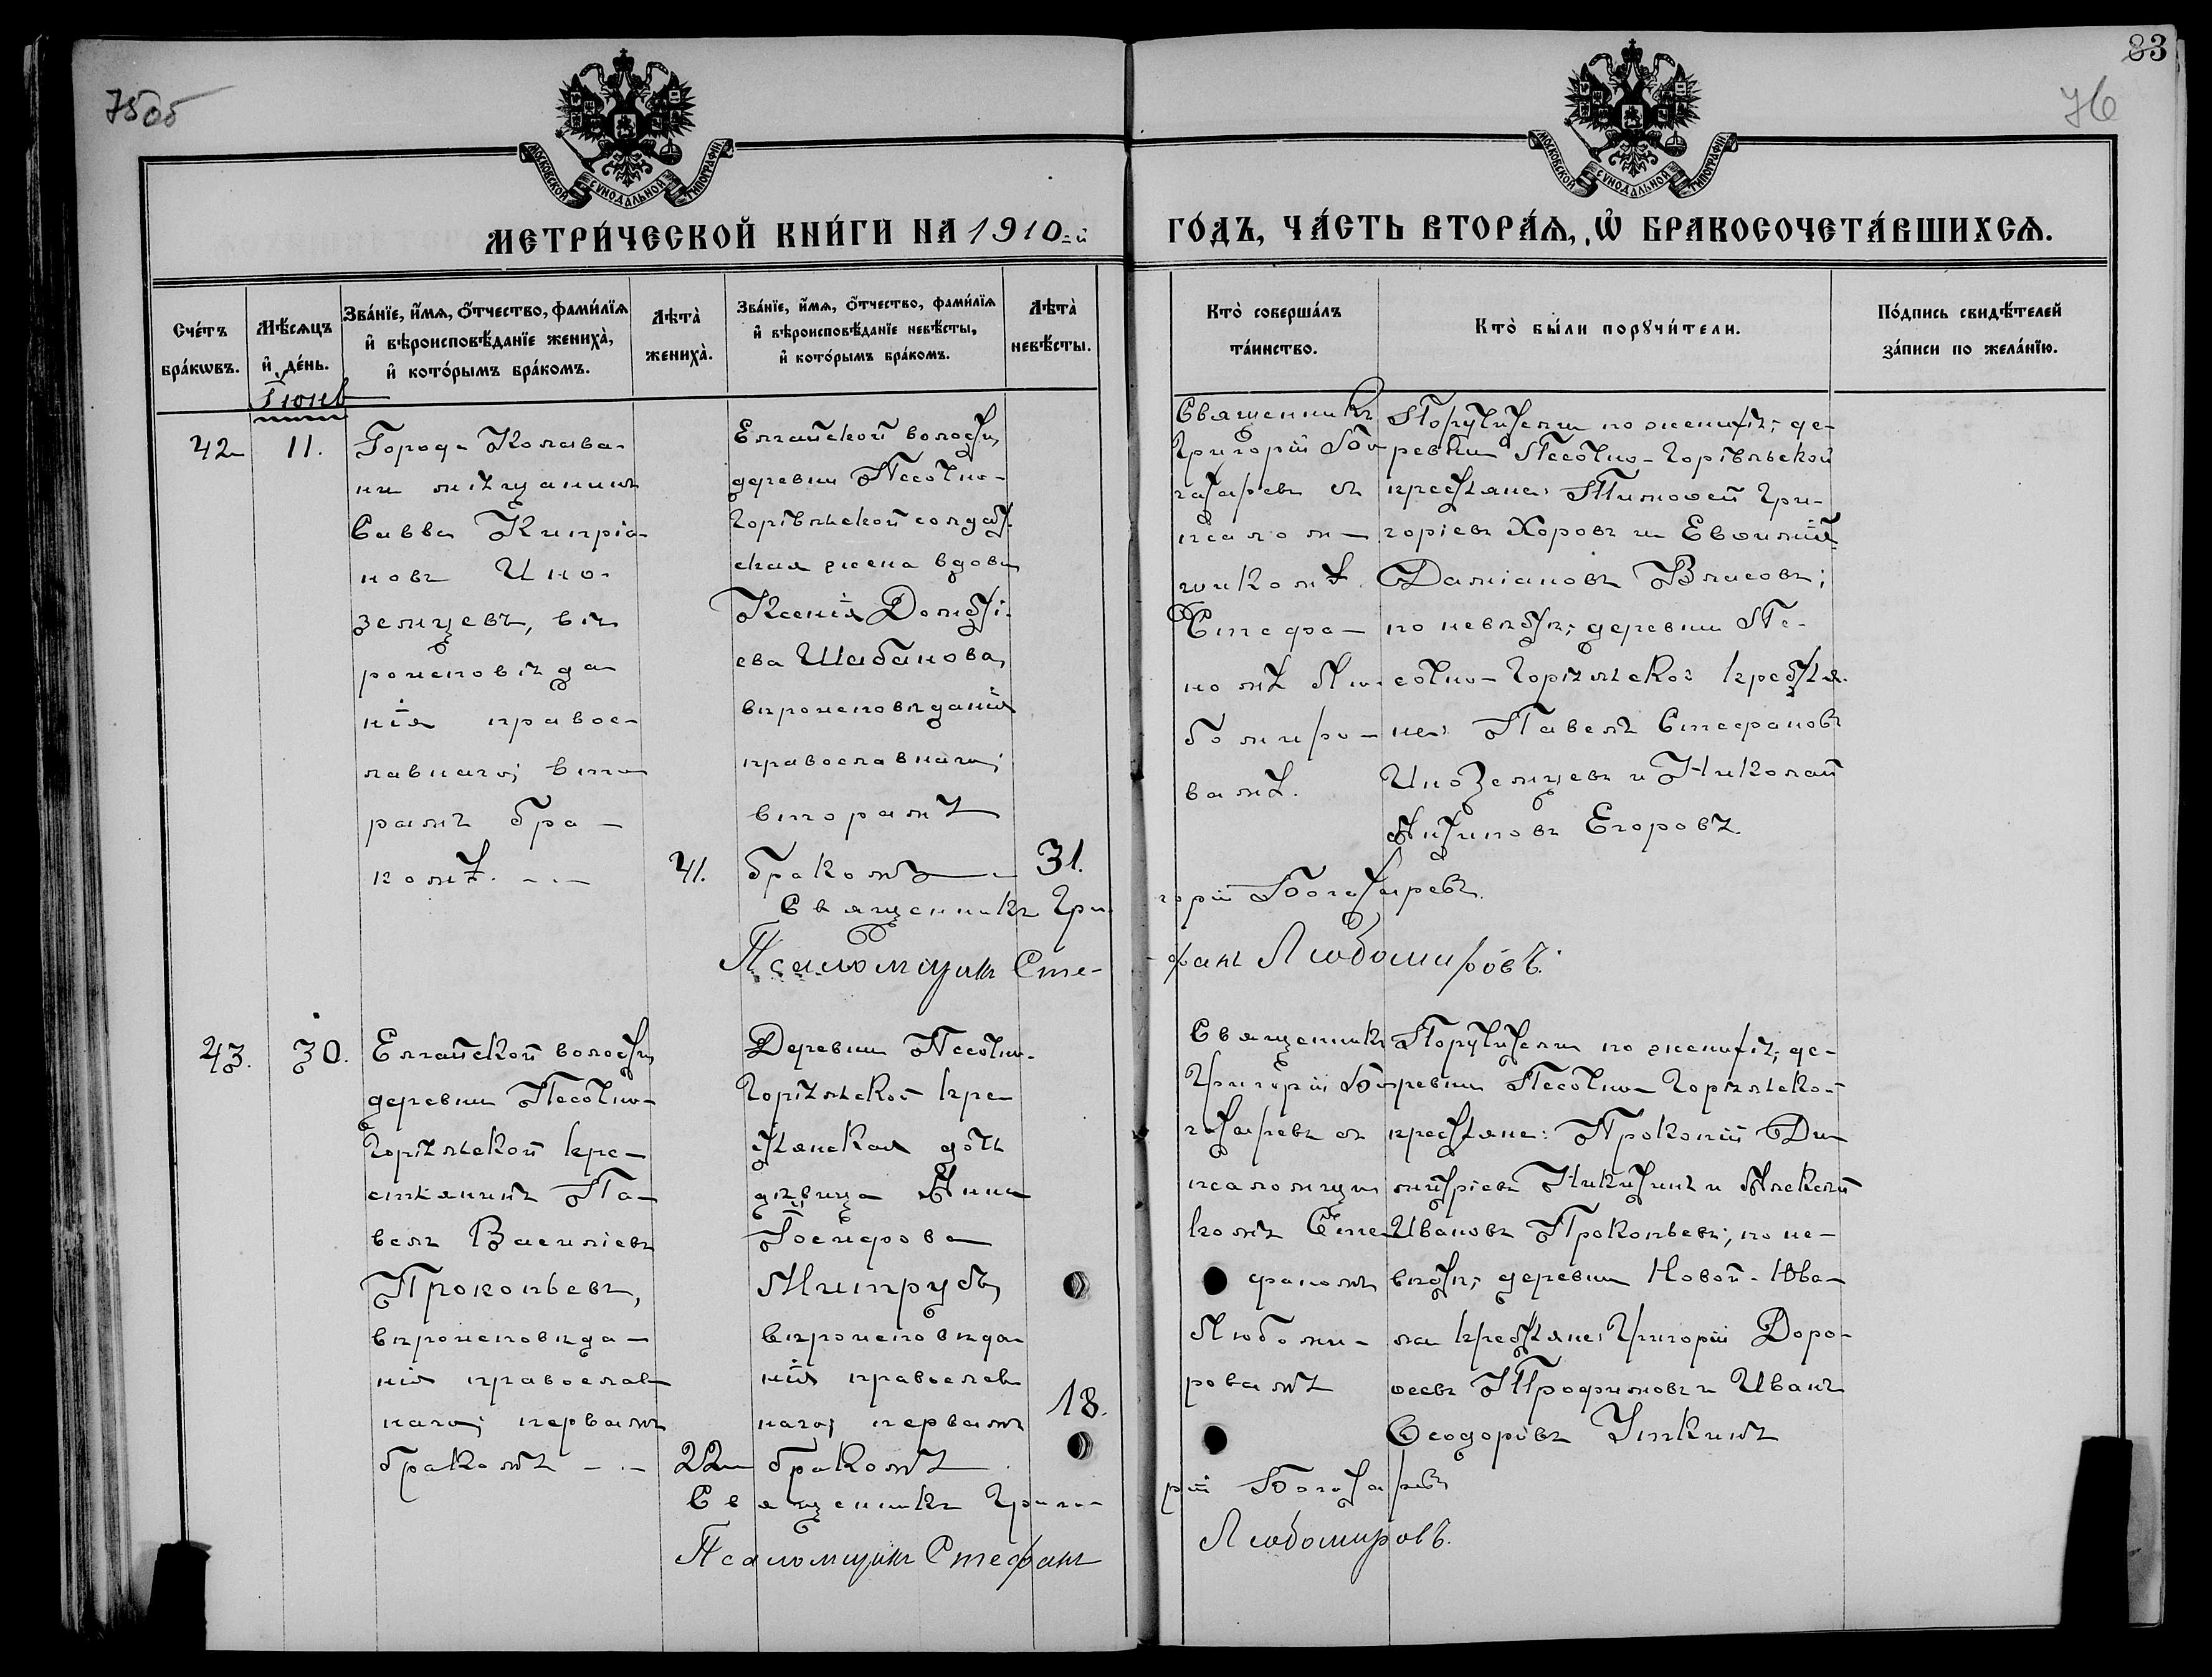 75об
83
76
МОСКОВСКОЙ СѴНОДАЛЬНОЙ ТИПОГРАФІИ
МОСКОВСКОЙ СѴНОДАЛЬНОЙ ТИПОГРАФІИ
МЕТРИ́ЧЕСКОЙ КНИ́ГИ НА 1910-й
ГО́ДЪ, ЧА́СТЬ ВТОРА́Ѧ, Ѡ БРАКОСОЧЕТА́ВШИХСѦ.
Сче́тъ
бра́кѡвъ.
Мѣ́сѧцъ
и҆ де́нь.
Зва́нїе, и҆́мѧ, ѻ҆́тчество, фами́лїѧ
и҆ вѣроисповѣ́данїе жениха̀,
и҆ кото́рымъ бра́комъ.
Лѣта̀
жениха̀.
Зва́нїе, и҆́мѧ, ѻ҆́тчество, фами́лїѧ
и҆ вѣроисповѣ́данїе невѣ́сты,
и҆ кото́рымъ бра́комъ.
Лѣта̀
невѣ́сты.
Кто̀ соверша́лъ
та́инство.
Кто̀ бы́ли порꙋчи́тели.
По́дпись свидѣ́телей
за́писи по жела́нїю.
Іюнь
42
11.
Города Колыва-
ни мѣщанинъ
Савва Кипріа-
новъ Ино-
земцевъ, вѣ-
роисповѣда
нія правос-
лавнаго; вто
рымъ бра-
комъ.
41.
Елгайской волости,
деревни Песочно-
Горѣльской солдат-
ская жена вдова
Ксенія Дометі-
ева Шабанова,
вѣроисповѣданія
православнаго;
вторымъ
бракомъ
31.
Священникъ
Григорій Бо-
гатыревъ съ
псалом-
щикомъ
Стефа-
номъ Лю-
бомиро-
вымъ.
Поручители по женихѣ; де-
ревни Песочно-Горѣльской
крестьяне: Тимоѳей Гри-
горіевъ Хоровъ и Евѳимій
Даміановъ Власовъ;
по невѣстѣ; деревни Пе-
сочно-Горѣльской крестья-
не: Павелъ Стефановъ
Иноземцевъ и Николай
Антиповъ Егоровъ.
Священникъ Гри-
горій Богатыревъ.
Псаломщикъ Сте-
фанъ Любомировъ.
43.
30.
Елгайской волости,
деревни Песочно-
Горѣльской кре-
стьянинъ Па-
велъ Василіевъ
Прокопьевъ,
вѣроисповѣда-
нія православ
наго; первымъ
бракомъ
22
Деревни Песочно-
Горѣльской кре-
стьянская дочь
дѣвица Анна
Іосифова
Митрусь,
вѣроисповѣда
нія православ
наго; первымъ
бракомъ
18.
Священникъ
Григорій Бо-
гатыревъ съ
псаломщи
комъ Сте-
фаномъ
Любоми-
ровымъ
Поручители по женихѣ; де-
ревни Песочно-Горѣльской
крестьяне: Прокопій Ди
митріевъ Никитинъ и Алексѣй
Ивановъ Прокопьевъ; по не-
вѣстѣ; деревни Новой-Юва-
ла крестьяне: Григорій Доро-
ѳеевъ Трофимовъ и Иванъ
Ѳеодоровъ Уткинъ
Священникъ Григо-
рій Богатыревъ
Псаломщикъ Стефанъ
Любомировъ.